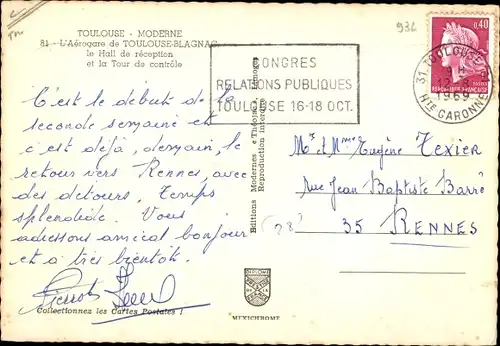 TOULOUSE - MODERNE
81 - L'Aérogare de TOULOUSE-BLAGNAC
le Hall de réception
et la Tour de contrôle
C'est le début de la
seconde semaine et
c'est déjà, demain, le
retour vers Rennes, avec
des détours. Temps
splendide. Vous
adressons amical bonjour
et à très bientôt.
Collectionnez les Cartes Postales !
Editions Modernes « Théojac » Limoges
Reproduction interdite
MEXICHROME
936
CONGRES
RELATIONS PUBLIQUES
TOULOUSE 16-18 OCT.
31 TOULOUSE
1969
HTE GARONNE
0,40
REPUBLIQUE FRANÇAISE
Mr et Mme Eugène TEXIER
rue Jean Baptiste Barré
35 RENNES